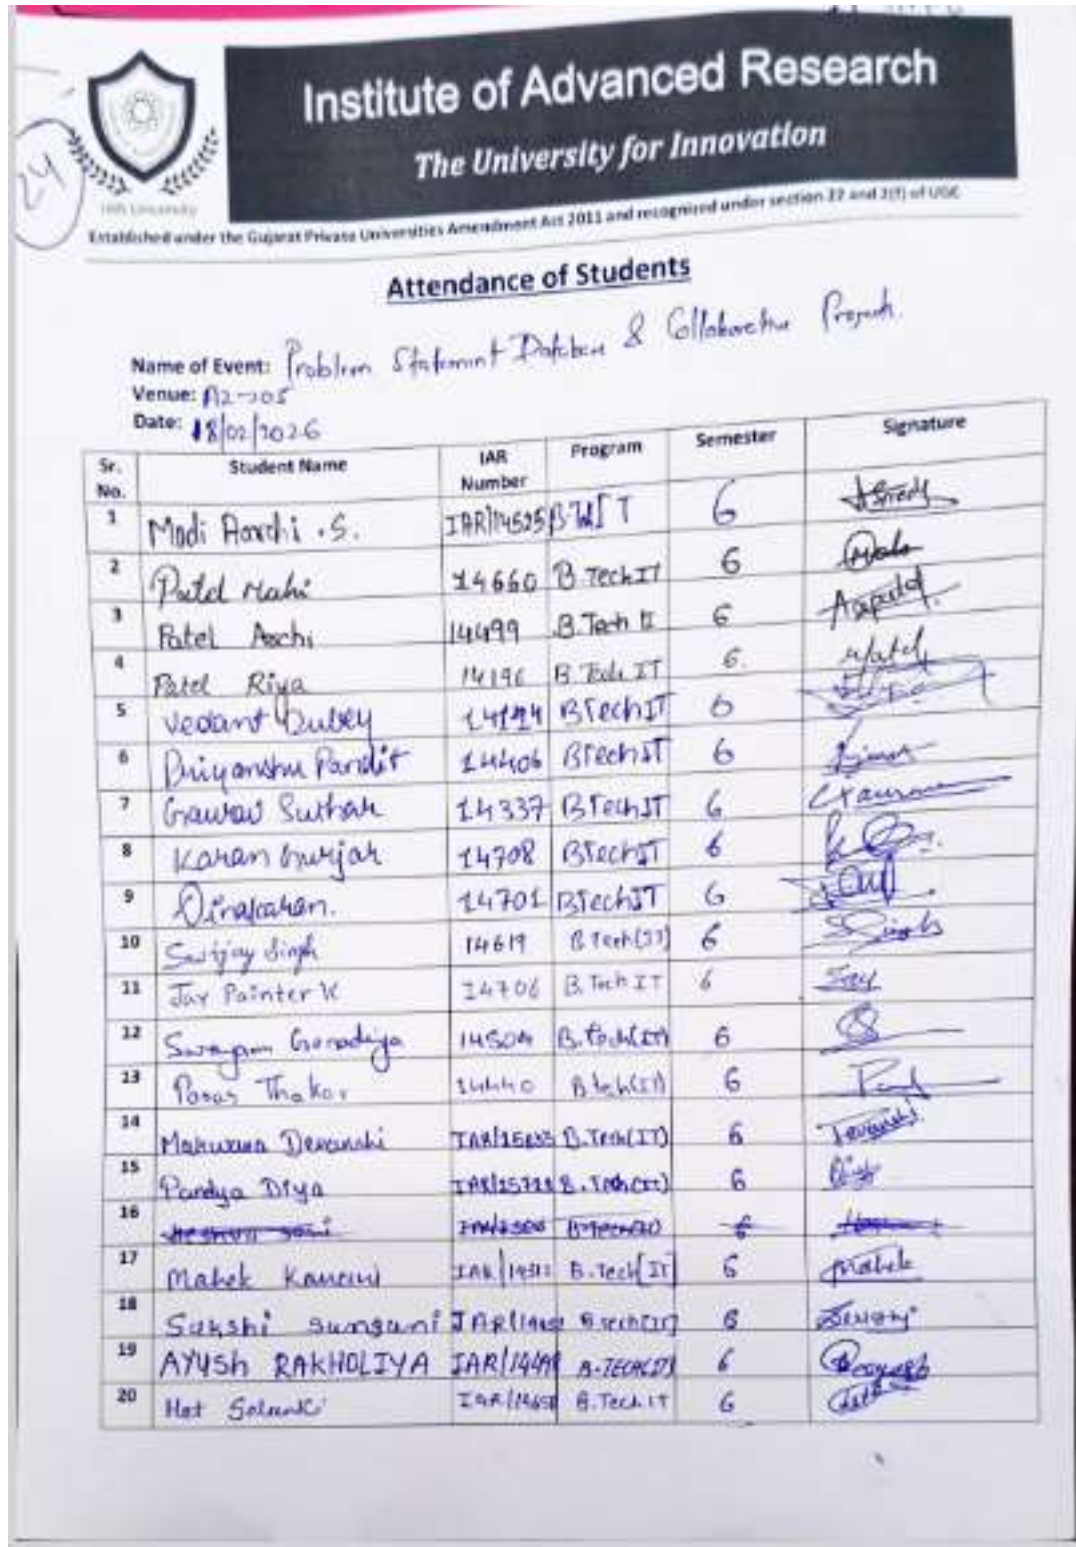 24
IAR University
Institute of Advanced Research
The University for Innovation
Established under the Gujarat Private Universities Amendment Act 2011 and recognized under section 22 and 2(f) of UGC
Attendance of Students
Name of Event: Problem Statement Database & Collaborative Projects.
Venue: A2-205
Date: 18/02/2026
Sr. No. Student Name IAR Number Program Semester Signature
1 Modi Aarchi .S. IAR/14525 B.Tech IT 6
2 Patel Mahi 14660 B.Tech IT 6
3 Patel Aschi 14499 B.Tech IT 6
4 Patel Riya 14196 B.Tech IT 6.
5 Vedant Dubey BTech IT 6
6 Priyanshu Pandit 14406 BTech IT 6
7 Gaurav Suthar 14337 BTech IT 6
8 Karan Gurjar 14708 BTech IT 6
9 14701 BTech IT 6
10 Singh 14619 B.Tech(IT) 6 Singh
11 Jay Painter K 14706 B.Tech IT 6 Jay
12 Swayam B.Tech(IT) 6
13 Paras Thakor 14440 B.tech(IT) 6
14 Makwana Devanshi B.Tech(IT) 6 Devanshi
15 Pandya Diya B.Tech(IT) 6
16 6
17 Mahek B.Tech[IT] 6 Mahek
18 Sakshi Sunsani B.tech[IT] 6
19 AYUSH RAKHOLIYA B.TECH(IT) 6
20 Het Solanki B.Tech IT 6